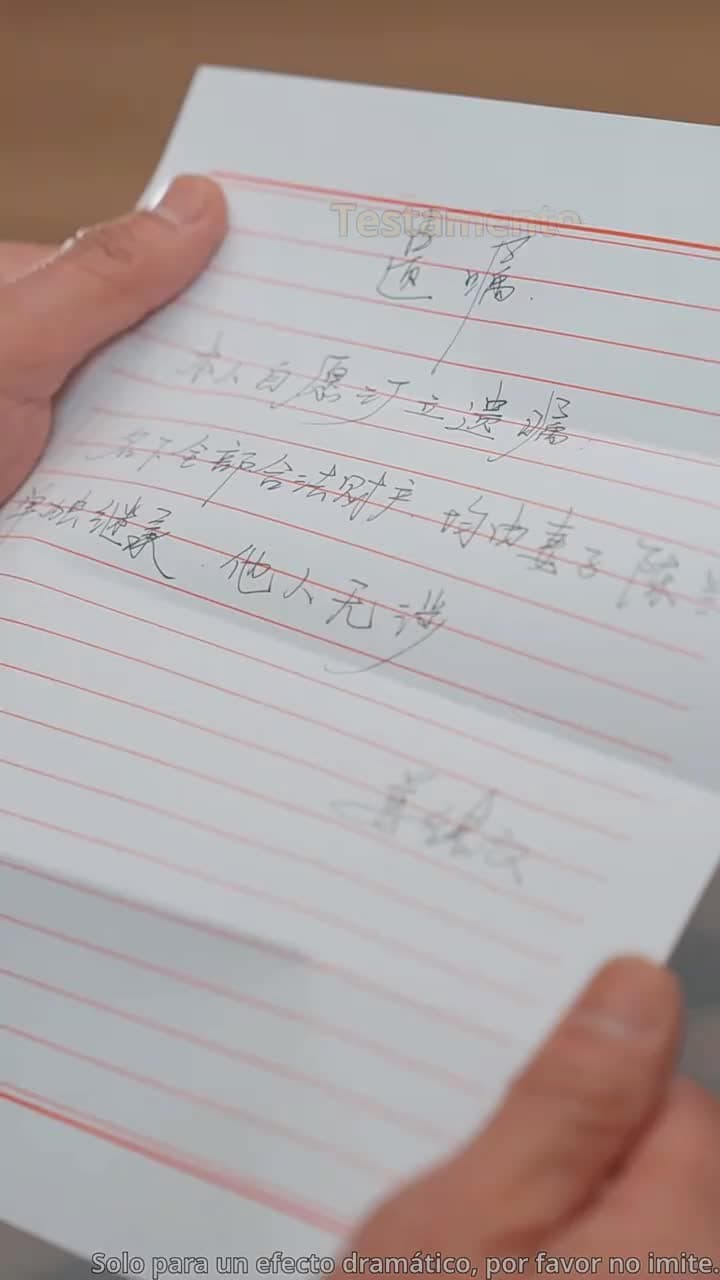 Testamento
遗嘱.
本人自愿订立遗嘱.
名下全部合法财产均由妻子陈
单独继承.他人无涉
Solo para un efecto dramático, por favor no imite.